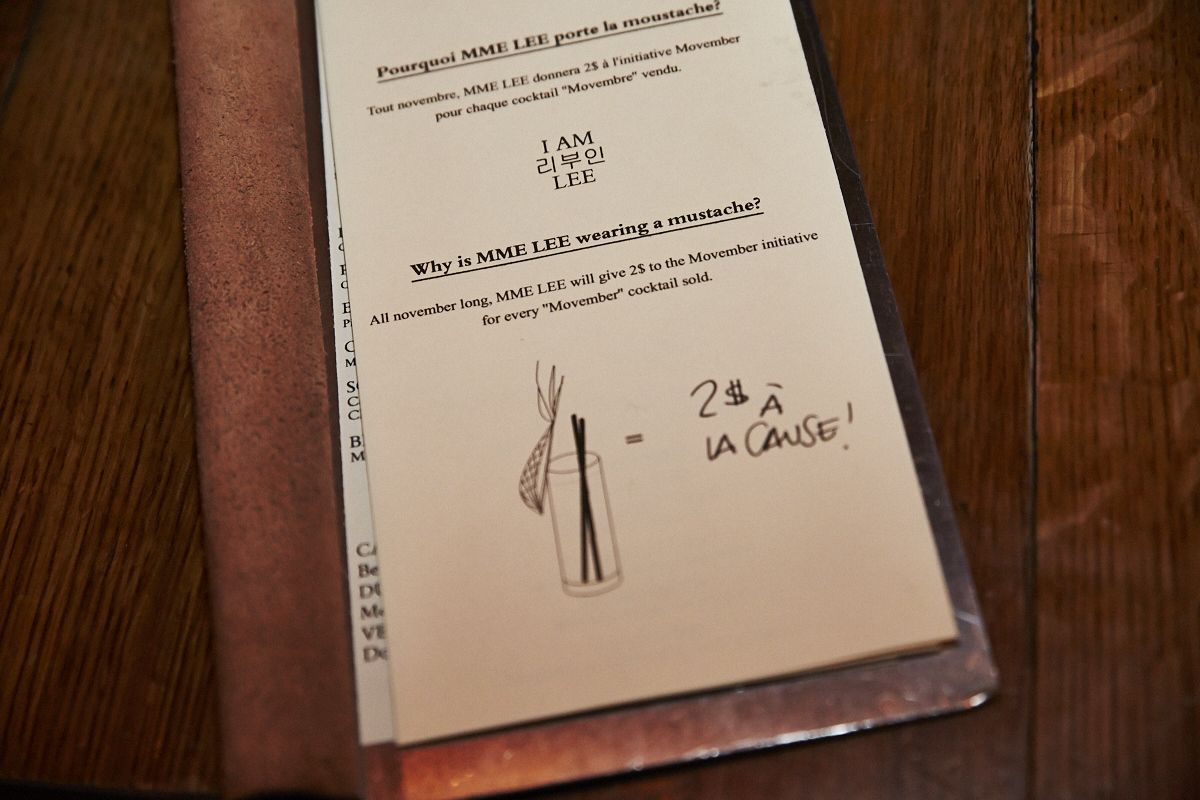 Pourquoi MME LEE porte la moustache?
Tout novembre, MME LEE donnera 2$ à l'initiative Movember
pour chaque cocktail "Movembre" vendu.
I AM
리부인
LEE
Why is MME LEE wearing a mustache?
All november long, MME LEE will give 2$ to the Movember initiative
for every "Movember" cocktail sold.
= 2$ À
LA CAUSE!